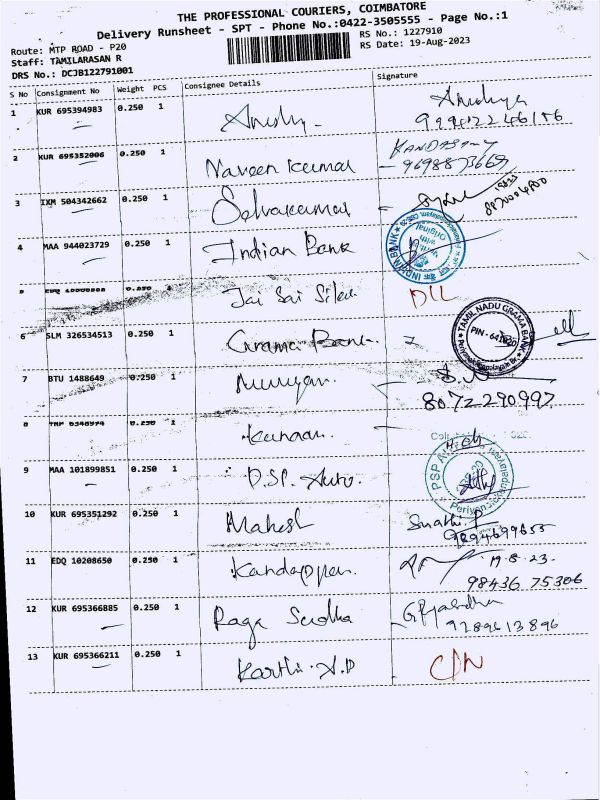 THE PROFESSIONAL COURIERS, COIMBATORE
Delivery Runsheet - SPT - Phone No.:0422-3505555 - Page No.:1
Route: MTP ROAD - P20
RS No.: 1227910
Staff: TAMILARASAN R
RS Date: 19-Aug-2023
DRS No.: DCJB122791001
S No Consignment No Weight PCS Consignee Details Signature
1 KUR 695394983 0.250 1
2 KUR 695352006 0.250 1 Naveen Kumar KANDASAMY
9698873669
3 IXM 504342662 0.250 1 Selvakumar
4 MAA 944023729 0.250 1 Indian Bank
INDIAN BANK
Jai Sai DLL
6 SLM 326534513 0.250 1 Grama Bank
TAMIL NADU GRAMA BANK
7 BTU 1488649 0.250 1 Murugan
8072290997
8 0.250 1 Kannan
9 MAA 101899851 0.250 1 D.S.P. Auto.
PSP
10 KUR 695351292 0.250 1 Mahesh Swathi.P
9894699655
11 EDQ 10208650 0.250 1 Kandappan 19.8.23.
98436 75306
12 KUR 695366885 0.250 1 Raga Sudha
9289613896
13 KUR 695366211 0.250 1 Karthi.A.P